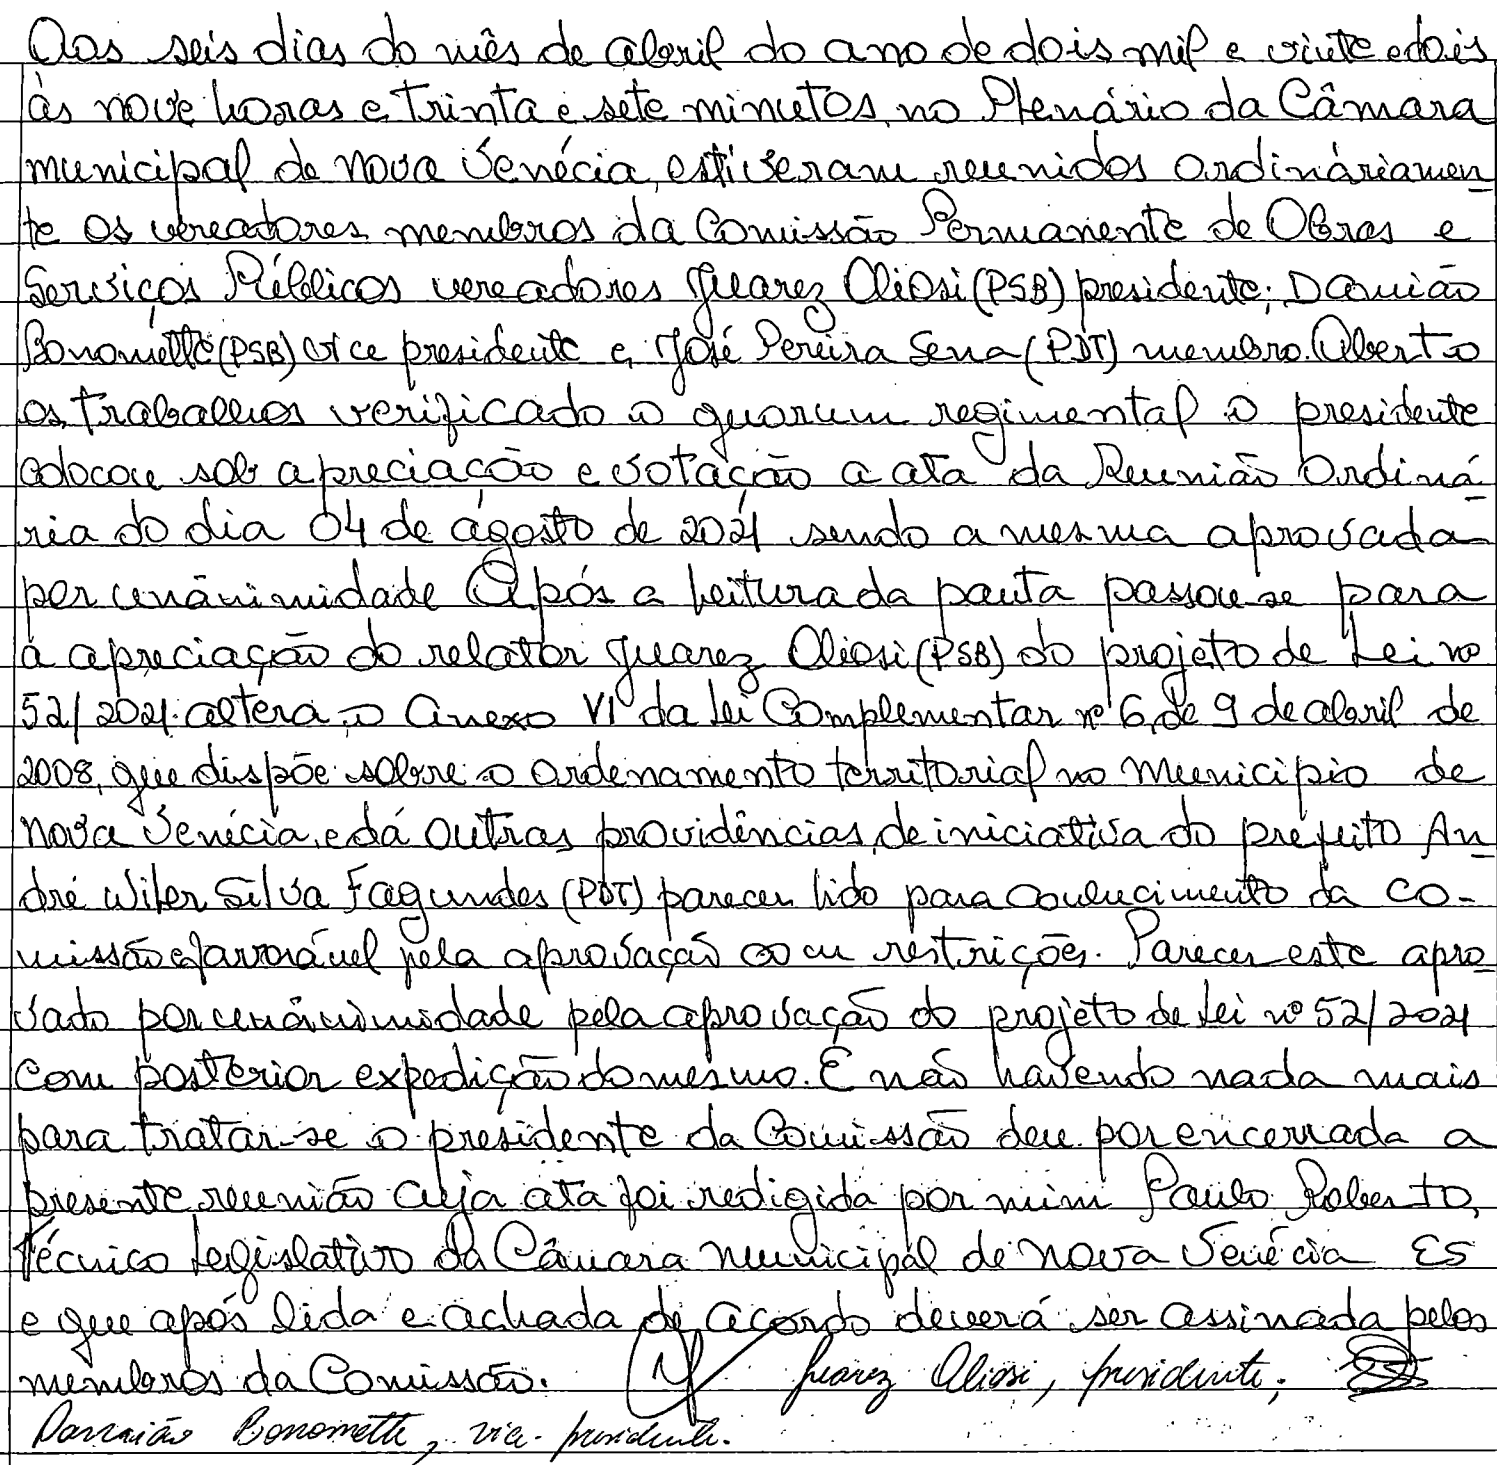 Aos seis dias do mês de abril do ano de dois mil e vinte e dois
às nove horas e trinta e sete minutos, no Plenário da Câmara
municipal de Nova Venécia, estiveram reunidos ordináriamen-
te os vereadores membros da Comissão Permanente de Obras e
Serviços Públicos vereadores Juarez Oliosi (PSB) presidente; Damião
Bonomette (PSB) vice presidente e, José Pereira Sena (PDT) membro. Aberto
os trabalhos verificado o quorum regimental o presidente
colocou sob apreciação e votação a ata da Reunião Ordiná-
ria do dia 04 de agosto de 2021 sendo a mesma aprovada
por unânimidade Após a leitura da pauta passou-se para
a apreciação do relator Juarez Oliosi (PSB) do projeto de Lei nº
52/2021. altera o Anexo VI da Lei Complementar nº 6, de 9 de abril de
2008, que dispõe sobre o ordenamento territorial no Município de
Nova Venécia, e dá outras providências, de iniciativa do prefeito An-
dré Wiler Silva Fagundes (PDT) parecer lido para conhecimento da co-
missão e favorável pela aprovação com restrições. Parecer este apro-
vado por unânimidade pela aprovação do projeto de Lei nº 52/2021
com posterior expedição do mesmo. E não havendo nada mais
para tratar-se o presidente da Comissão deu por encerrada a
presente reunião cuja ata foi redigida por mim Paulo Roberto,
Técnico Legislativo da Câmara Municipal de Nova Venécia ES
e que após lida e achada de acordo deverá ser assinada pelos
membros da Comissão. Juarez Oliosi, presidente;
Damião Bonomette, vice-presidente.